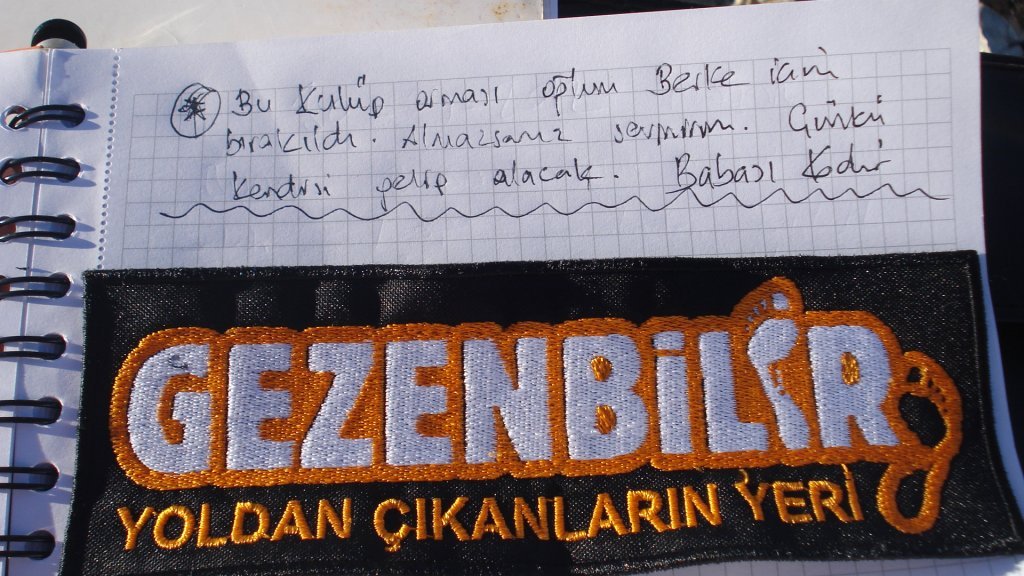 Bu Kulüp arması oğlum Berke için
bırakıldı. Almazsanız sevinirim. Çünkü
kendisi gelip alacak. Babası Kadir
GEZENBİLİR
YOLDAN ÇIKANLARIN YERİ